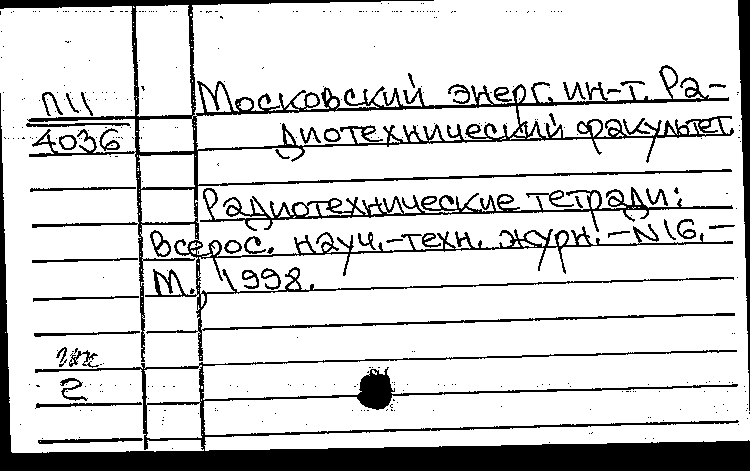 П11
4036
Московский энерг. ин-т. Ра-
диотехнический факультет.
Радиотехнические тетради:
Всерос. науч.-техн. журн. – N16. –
М., 1998.
2